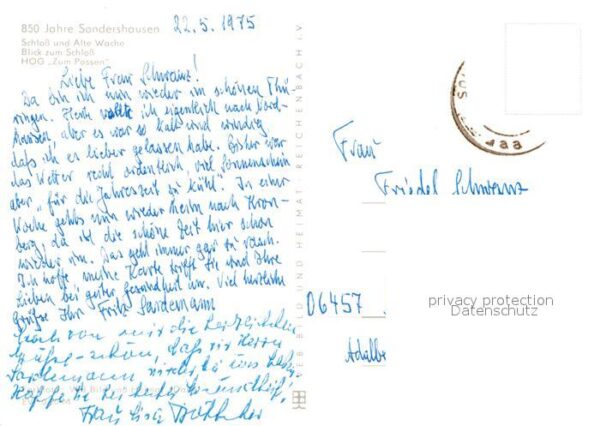 850 Jahre Sondershausen
Schloß und Alte Wache
Blick zum Schloß
HOG „Zum Possen"
22.5.1975
Liebe Frau Schwanz!
Da bin ich nun wieder im schönen Thü-
ringen. Heute wollte ich eigentlich nach Nord-
hausen, aber es war so kalt und windig
daß ich es lieber gelassen habe. Bisher war
das Wetter recht ordentlich, viel Sonnenschein
aber, für die Jahreszeit zu kühl. In einer
Woche gehts nun wieder heim nach Kron-
berg, da ist die schöne Zeit hier schon
wieder um. Das geht immer gar zu rasch.
Ich hoffe meine Karte trifft Sie und Ihre
Lieben bei guter Gesundheit an. Viel herzliche
Grüße Ihr Fritz Sandemann
Auch von mir die herzlichsten
Grüße - schön, daß wir Herrn
Frau Lisa
VEB BILD UND HEIMAT REICHENBACH I.V.
Frau
Friedel Schwanz
06457
Adelbe
privacy protection
Datenschutz